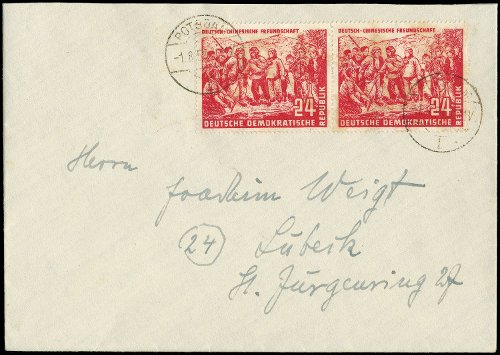 POTSDAM
DEUTSCH-CHINESISCHE FREUNDSCHAFT
24
DEUTSCHE DEMOKRATISCHE
REPUBLIK
DEUTSCH-CHINESISCHE FREUNDSCHAFT
24
DEUTSCHE DEMOKRATISCHE
REPUBLIK
Herrn
Joachim Weigt
24 Lübeck
St. Jürgenring 27